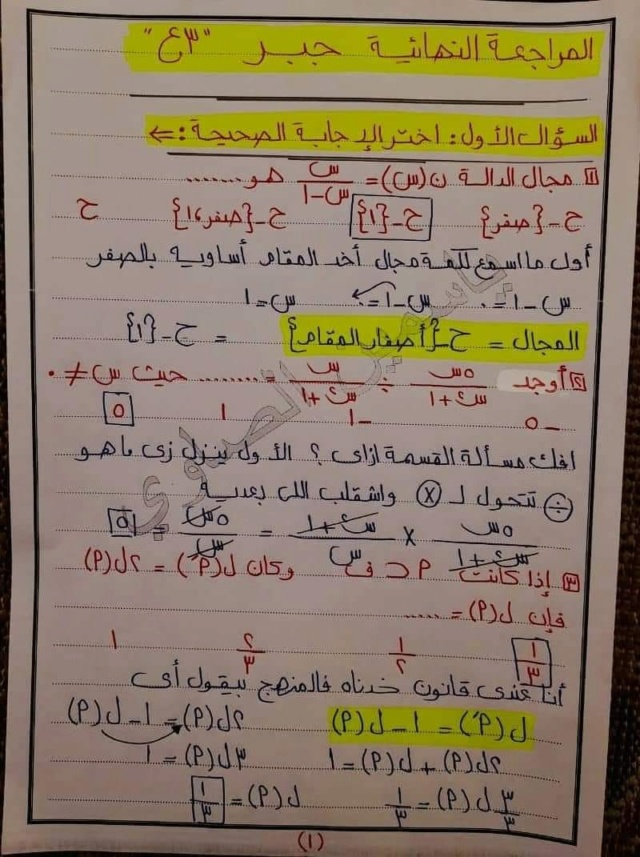 المراجعة النهائية جبر "٣ع"
السؤال الأول: اختر الإجابة الصحيحة: ⇐
١ مجال الدالة ن(س) = س/(س-١) هو .......
ح-{صفر} ح-{١} ح-{صفر،١} ح
أول ما اسمع كلمة مجال أخد المقام أساويه بالصفر
س-١=٠ س-١=٠ س=١
المجال = ح-{أصفار المقام} = ح-{١}
٢ أوجد ٥س/(س²+١) ÷ س/(س²+١) = ........ حيث س ≠ ٠
-٥ -١ ١ ٥
افك مسألة القسمة ازاى؟ الأول ينزل زى ما هو
÷ تتحول لـ × واشقلب اللى بعديه
٥س/(س²+١) × (س²+١)/س = ٥س/س = ٥
٣ إذا كانت م ⊂ ف وكان ل(مَ) = ٢ل(م)
فإن ل(م) = .....
١/٣ ١/٢ ٢/٣ ١
أنا عندى قانون خدناه فالمنهج بيقول أى
ل(مَ) = ١-ل(م) ٢ل(م) = ١-ل(م)
٢ل(م)+ل(م)=١ ٣ل(م)=١
٣/٣ ل(م) = ١/٣ ل(م) = ١/٣
(١)
ياسمين الصاوي